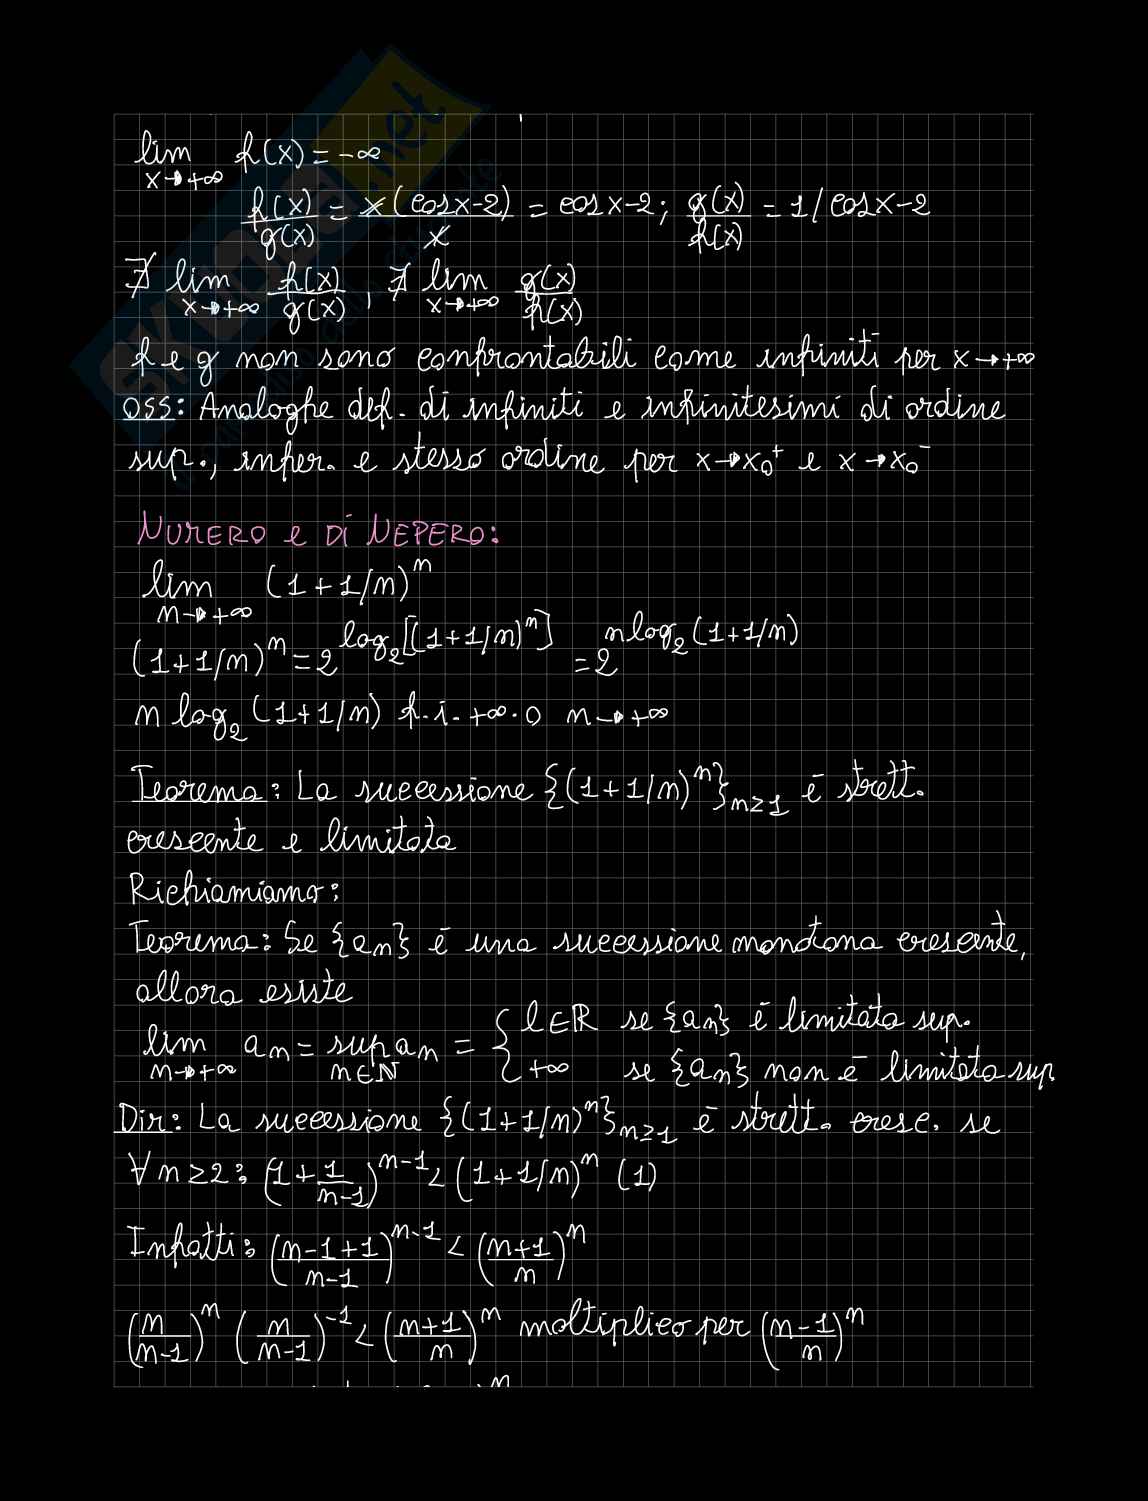 lim f(x) = -∞
x→+∞
f(x)/g(x) = x(cosx-2)/x = cosx-2; g(x)/f(x) = 1/cosx-2
∄ lim x→+∞ f(x)/g(x), ∄ lim x→+∞ g(x)/f(x)
f e g non sono confrontabili come infiniti per x→+∞
OSS: Analoghe def. di infiniti e infinitesimi di ordine
sup., infer. e stesso ordine per x→x₀⁺ e x→x₀⁻
NUMERO e DI NEPERO:
lim (1+1/n)^n
n→+∞
(1+1/n)^n = 2^log₂[(1+1/n)^n] = 2^nlog₂(1+1/n)
n log₂(1+1/n) f.i. +∞·0 n→+∞
Teorema: La successione {(1+1/n)^n}n≥1 è strett.
crescente e limitata
Richiamiamo:
Teorema: Se {an} è una successione monotona crescente,
allora esiste
lim n→+∞ an = sup n∈ℕ an = { l∈ℝ se {an} è limitata sup.
+∞ se {an} non è limitata sup.
Dim: La successione {(1+1/n)^n}n≥1 è strett. cresc. se
∀n≥2: (1+1/(n-1))^(n-1) < (1+1/n)^n (1)
Infatti: ((n-1+1)/(n-1))^(n-1) < ((n+1)/n)^n
(n/(n-1))^n (n/(n-1))^-1 < ((n+1)/n)^n moltiplico per ((n-1)/n)^n